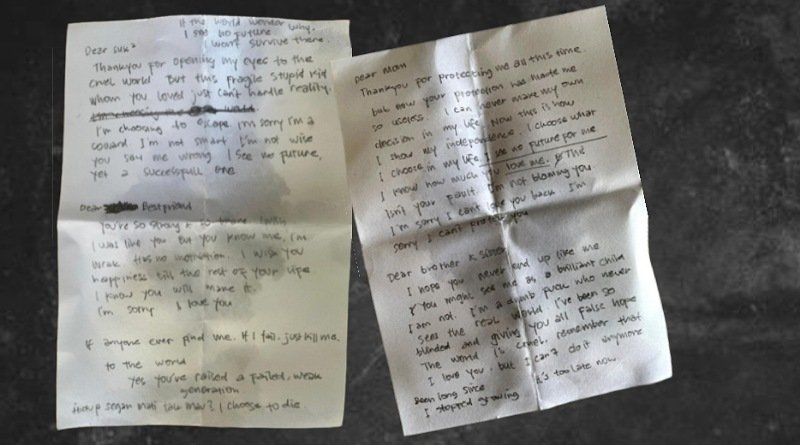 If the world wonder why.
I see no future
won't survive there.
Dear suk²
Thankyou for opening my eyes to the
cruel world. But this fragile stupid kid
whom you loved just can't handle reality.
I'm choosing to escape. I'm sorry I'm a
coward I'm not smart I'm not wise
you saw me wrong I see no future,
yet a successfull one
Dear Bestfriend
You're so strong &
I was like you But you know me, I'm
weak. Has no motivation. I wish you
happiness till the rest of your life
I know you will make it.
I'm sorry I love you
If anyone ever find me. If I fail. just kill me.
to the world
yes you've raised a failed, weak
generation
segan mati tak mau? I choose to die
Dear Mom
Thankyou for protecting me all this time.
but now your protection has made me
so useless. I can never make my own
decision in my life. Now this is how
I show my independence. I choose what
I choose in my life. I see no future for me
I know how much you love me. The
Isn't your fault. I'm not blaming you
I'm sorry I can't love you back. I'm
sorry I can't protect you
Dear brother & sister
I hope you never end up like me
& You might see me as a brilliant child
I am not. I'm a dumb fuck who never
sees the real world. I've been so
blinded and giving you all false hope
The world is cruel. remember that
I love you, but I can't do it anymore
been long since
I stopped growing it's too late now.